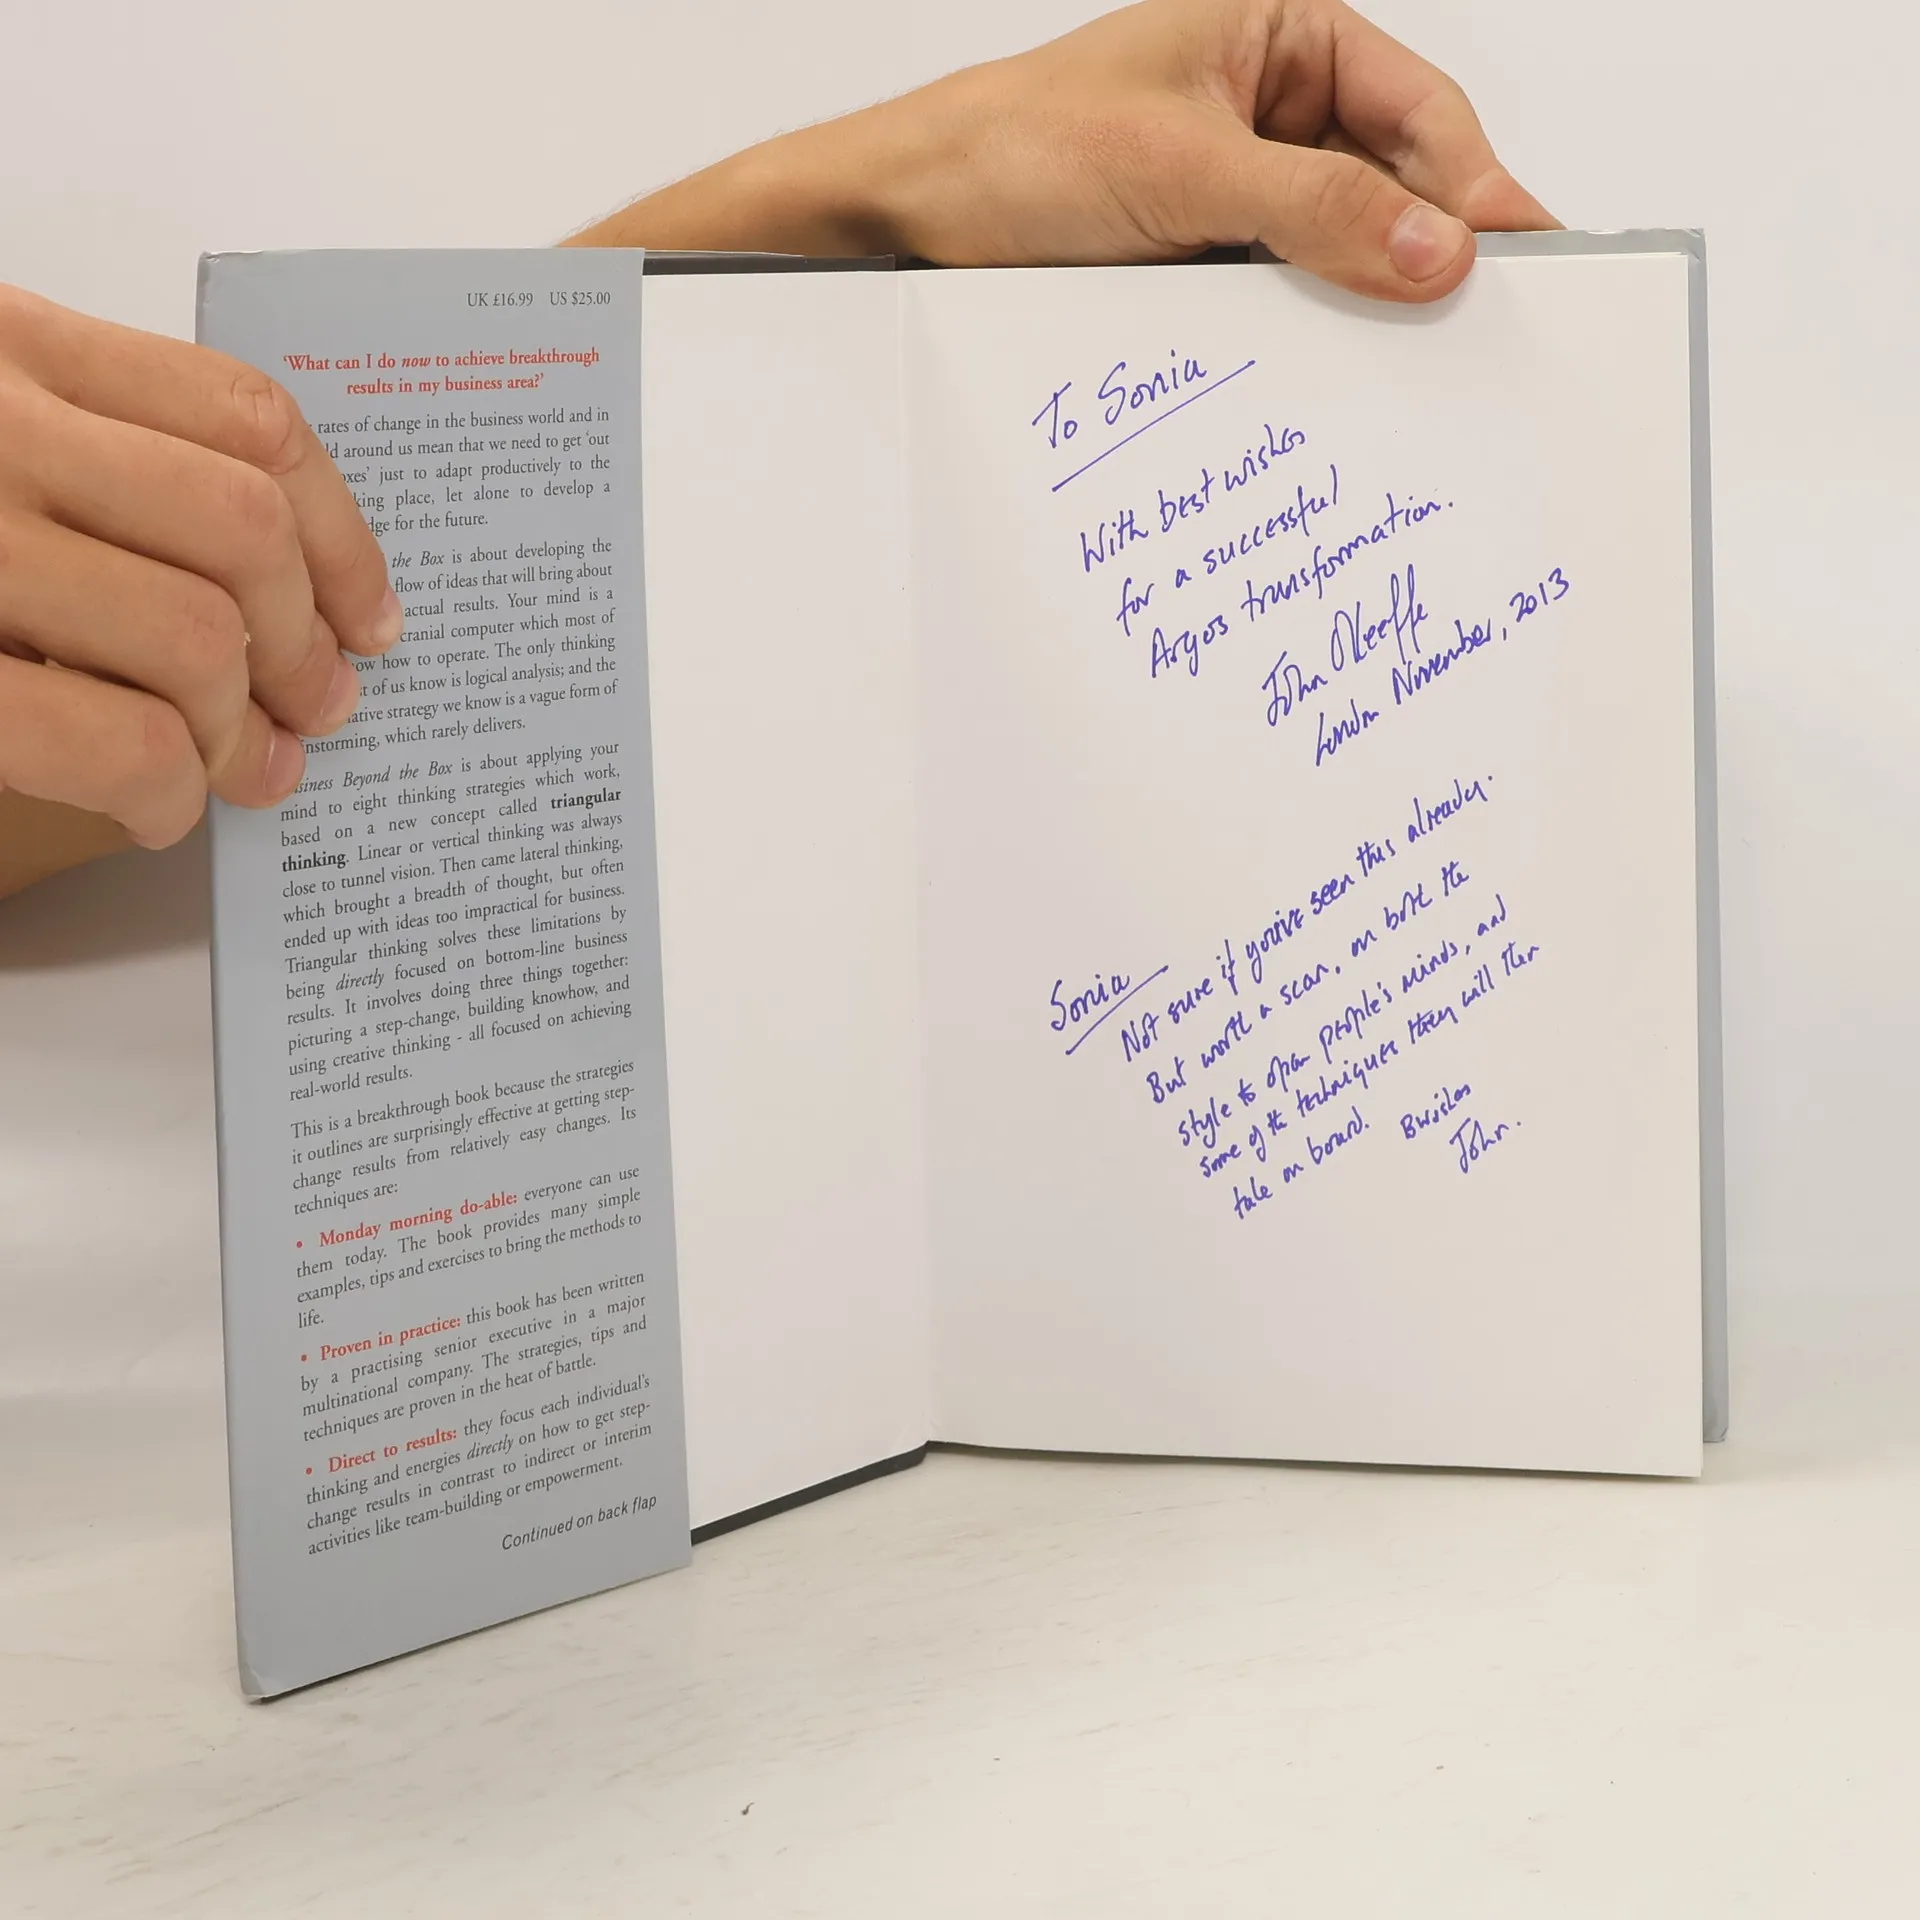 UK £16.99 US $25.00
‘What can I do now to achieve breakthrough
results in my business area?’
rates of change in the business world and in
around us mean that we need to get ‘out
just to adapt productively to the
place, let alone to develop a
for the future.
the Box is about developing the
flow of ideas that will bring about
actual results. Your mind is a
cranial computer which most of
how to operate. The only thinking
of us know is logical analysis; and the
strategy we know is a vague form of
which rarely delivers.
Beyond the Box is about applying your
mind to eight thinking strategies which work,
based on a new concept called triangular
thinking. Linear or vertical thinking was always
close to tunnel vision. Then came lateral thinking,
which brought a breadth of thought, but often
ended up with ideas too impractical for business.
Triangular thinking solves these limitations by
being directly focused on bottom-line business
results. It involves doing three things together:
picturing a step-change, building knowhow, and
using creative thinking - all focused on achieving
real-world results.
This is a breakthrough book because the strategies
it outlines are surprisingly effective at getting step-
change results from relatively easy changes. Its
techniques are:
• Monday morning do-able: everyone can use
them today. The book provides many simple
examples, tips and exercises to bring the methods to
life.
• Proven in practice: this book has been written
by a practising senior executive in a major
multinational company. The strategies, tips and
techniques are proven in the heat of battle.
• Direct to results: they focus each individual’s
thinking and energies directly on how to get step-
change results in contrast to indirect or interim
activities like team-building or empowerment.
Continued on back flap
To Sonia
With best wishes
for a successful
Argos transformation.
John O'Keeffe
London November, 2013
Sonia
Not sure if you've seen this already.
But worth a scan, on both the
style to open people's minds, and
some of the techniques they will then
take on board. Bwishes
John.